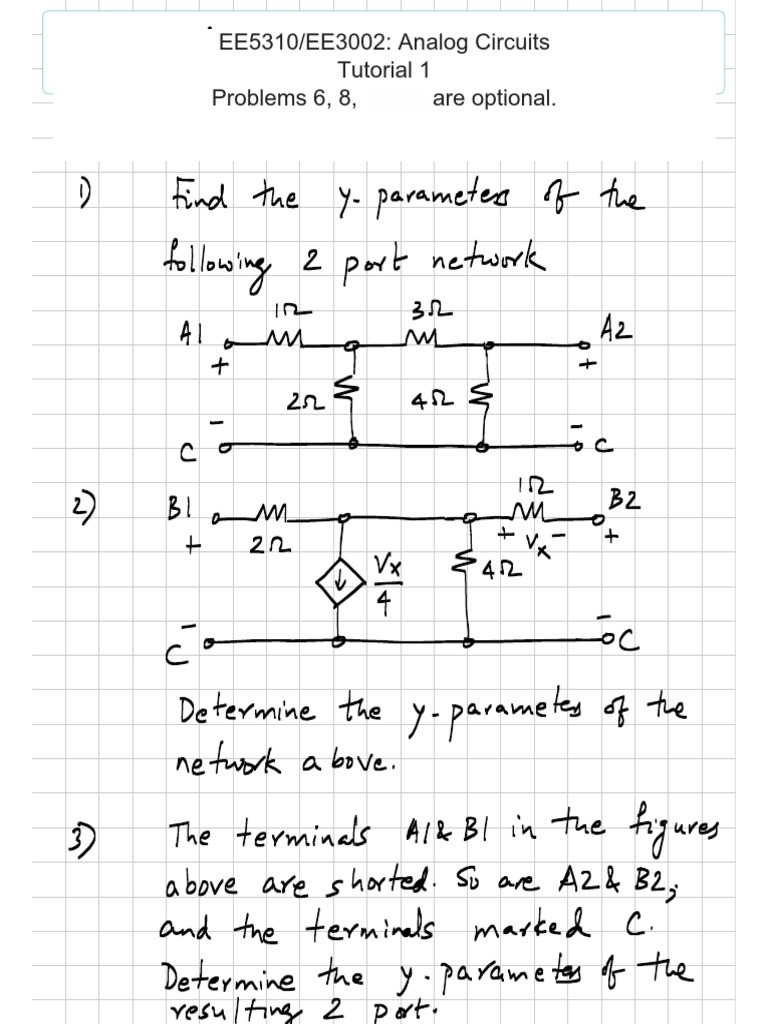 EE5310/EE3002: Analog Circuits
Tutorial 1
Problems 6, 8, are optional.
1) Find the y-parameters of the
following 2 port network
1Ω 3Ω
A1 A2
+ +
2Ω 4Ω
- -
C C
2) B1 1Ω B2
+ 2Ω + Vx - +
Vx/4 4Ω
- -
C C
Determine the y-parameters of the
network above.
3) The terminals A1 & B1 in the figures
above are shorted. So are A2 & B2,
and the terminals marked C.
Determine the y-parameters of the
resulting 2 port.